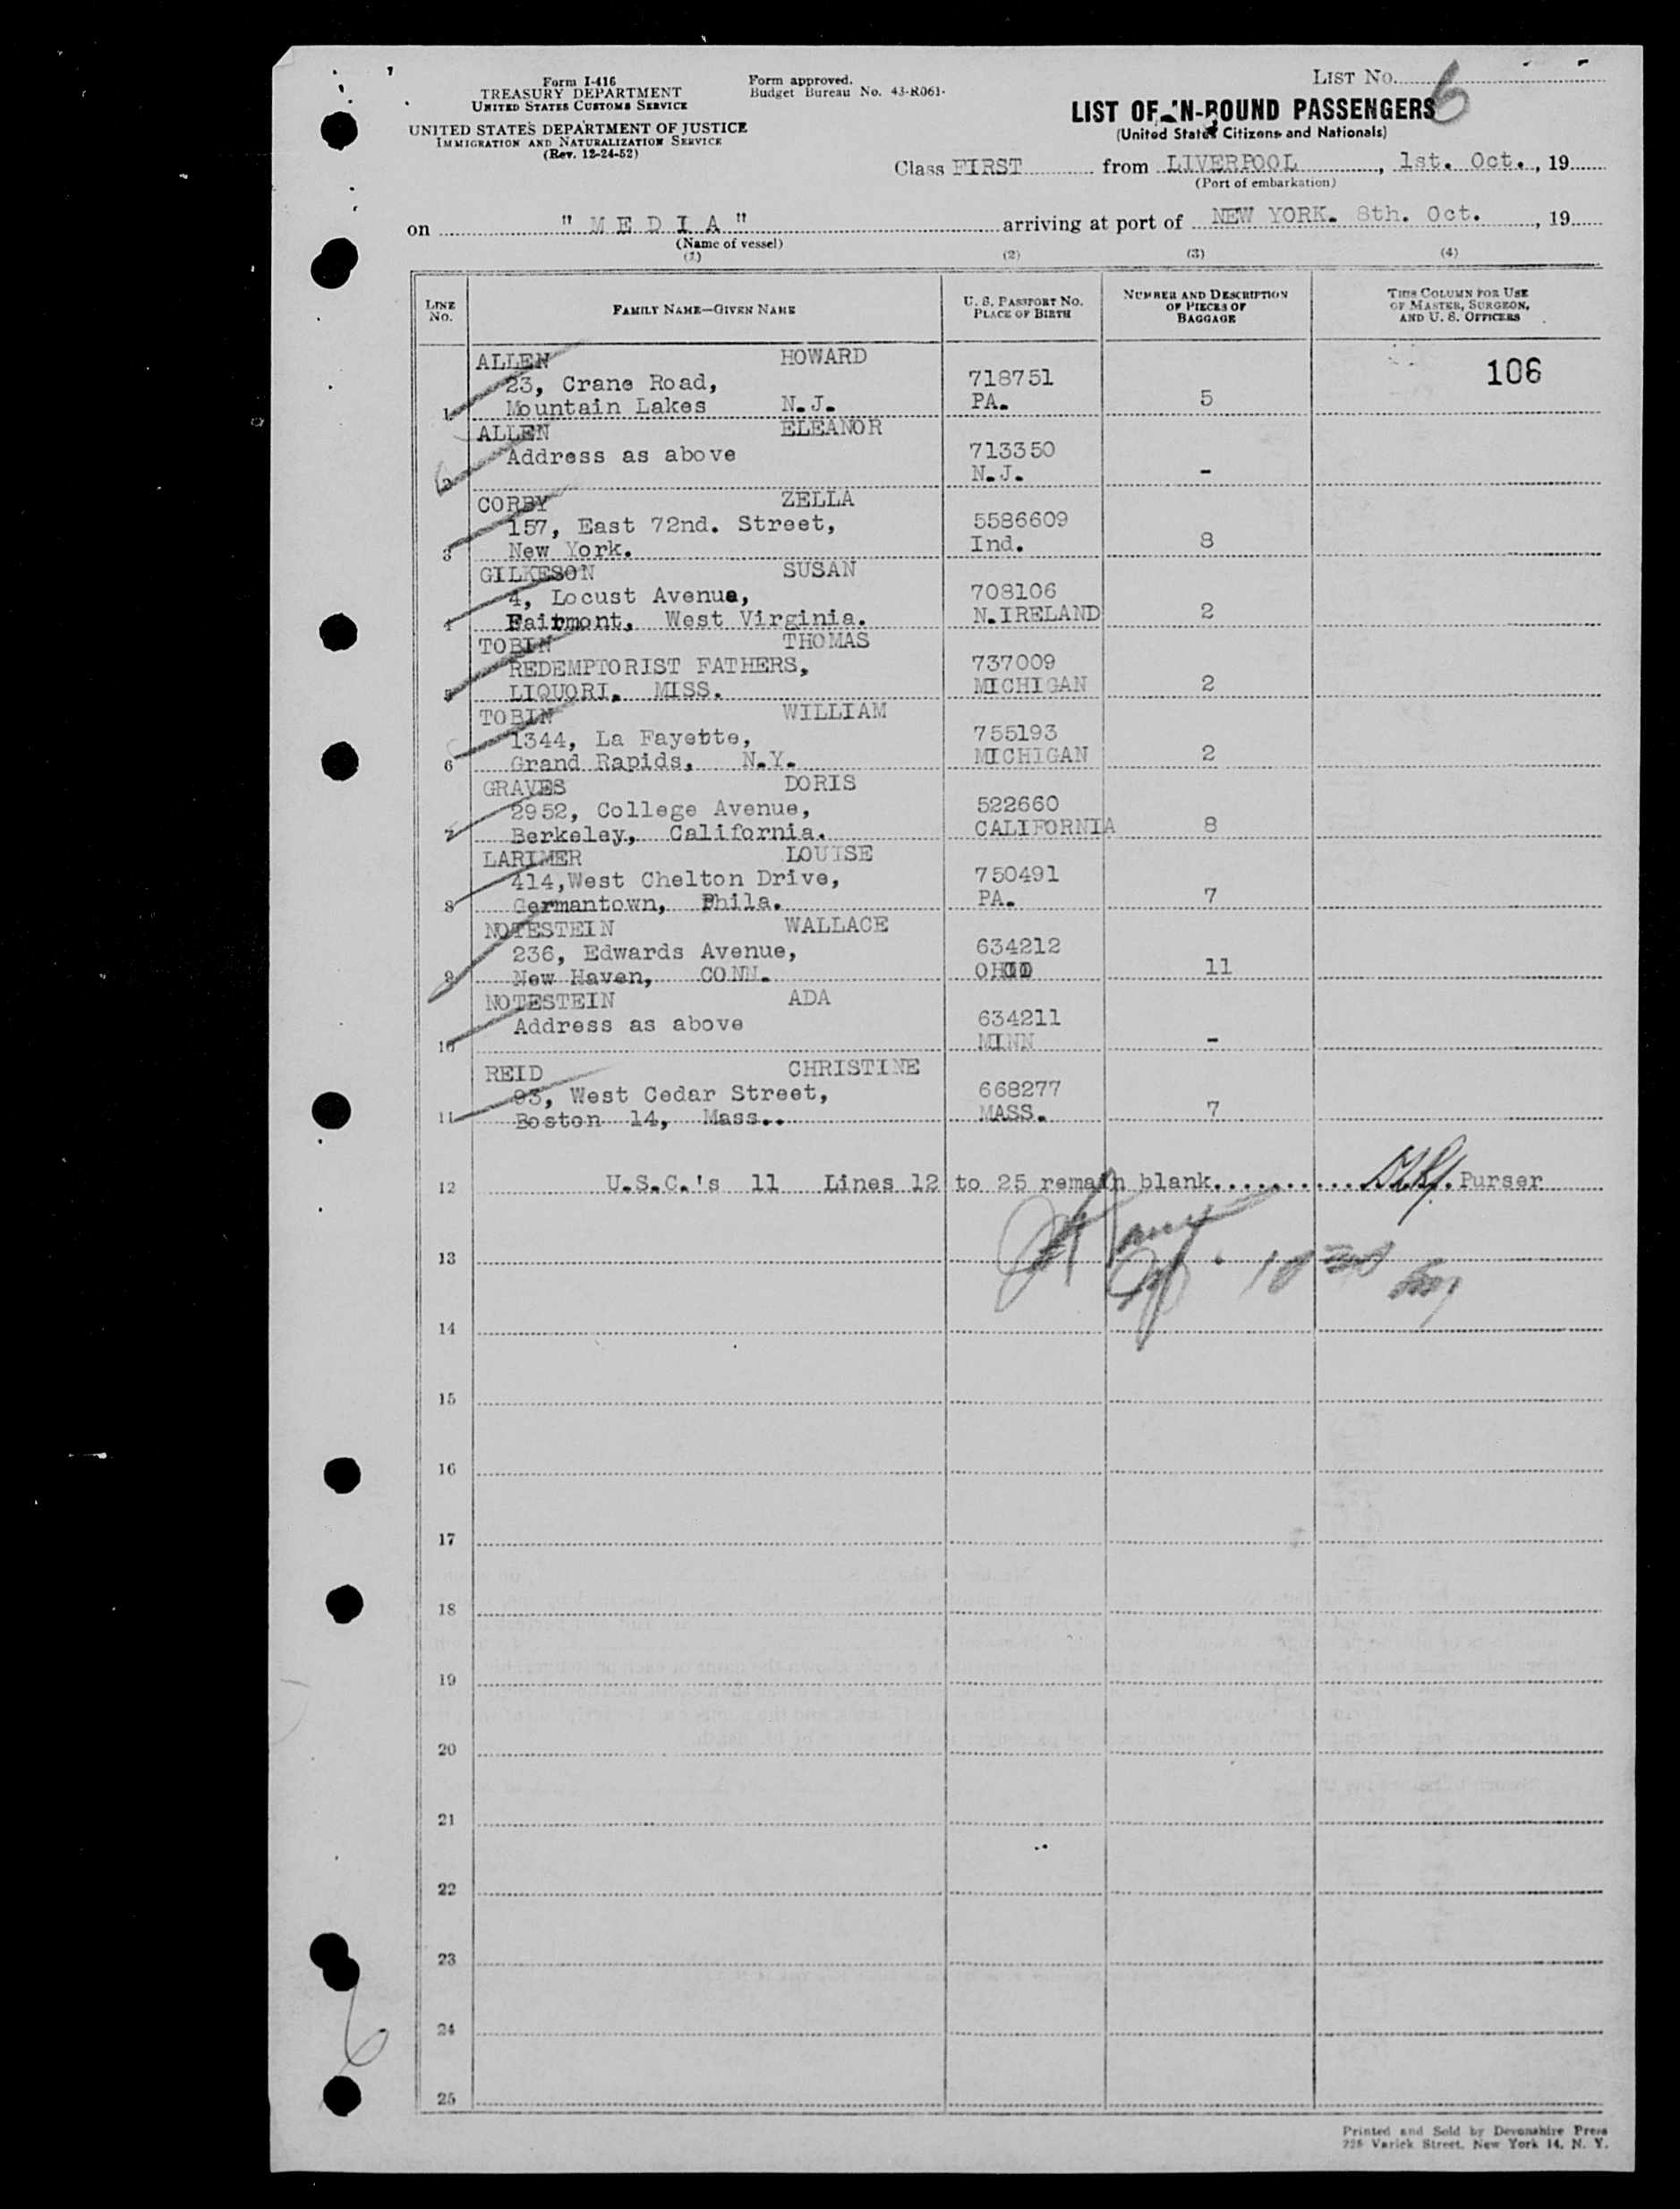 Form I-416
TREASURY DEPARTMENT
UNITED STATES CUSTOMS SERVICE
UNITED STATES DEPARTMENT OF JUSTICE
IMMIGRATION AND NATURALIZATION SERVICE
(Rev. 12-24-52)
Form approved.
Budget Bureau No. 43-R061-
LIST No. 6
LIST OF IN-BOUND PASSENGERS
(United States Citizens and Nationals)
Class FIRST from LIVERPOOL, 1st. Oct., 19
(Port of embarkation)
on "MEDIA" arriving at port of NEW YORK. 8th. Oct., 19
(Name of vessel)
(1) (2) (3) (4)
LINE No. FAMILY NAME—GIVEN NAME U. S. PASSPORT No. PLACE OF BIRTH NUMBER AND DESCRIPTION OF PIECES OF BAGGAGE THIS COLUMN FOR USE OF MASTER, SURGEON, AND U. S. OFFICERS
ALLEN HOWARD
106
23, Crane Road, 718751
1 Mountain Lakes N.J. PA. 5
ALLEN ELEANOR
Address as above 713350
2 N.J. -
CORBY ZELLA
157, East 72nd. Street, 5586609
3 New York. Ind. 8
GILKESON SUSAN
4, Locust Avenue, 708106
4 Fairmont, West Virginia. N.IRELAND 2
TOBIN THOMAS
REDEMPTORIST FATHERS, 737009
5 LIQUORI, MISS. MICHIGAN 2
TOBIN WILLIAM
1344, La Fayette, 755193
6 Grand Rapids, N.Y. MICHIGAN 2
GRAVES DORIS
2952, College Avenue, 522660
7 Berkeley, California. CALIFORNIA 8
LARIMER LOUISE
414,West Chelton Drive, 750491
8 Germantown, Phila. PA. 7
NOTESTEIN WALLACE
236, Edwards Avenue, 634212
9 New Haven, CONN. OHIO 11
NOTESTEIN ADA
Address as above 634211
10 MINN -
REID CHRISTINE
93, West Cedar Street, 668277
11 Boston 14, Mass.. MASS. 7
12 U.S.C.'s 11 Lines 12 to 25 remain blank........... Purser
13
14
15
16
17
18
19
20
21
22
23
24
25
6
Printed and Sold by Devonshire Press
225 Varick Street, New York 14, N. Y.